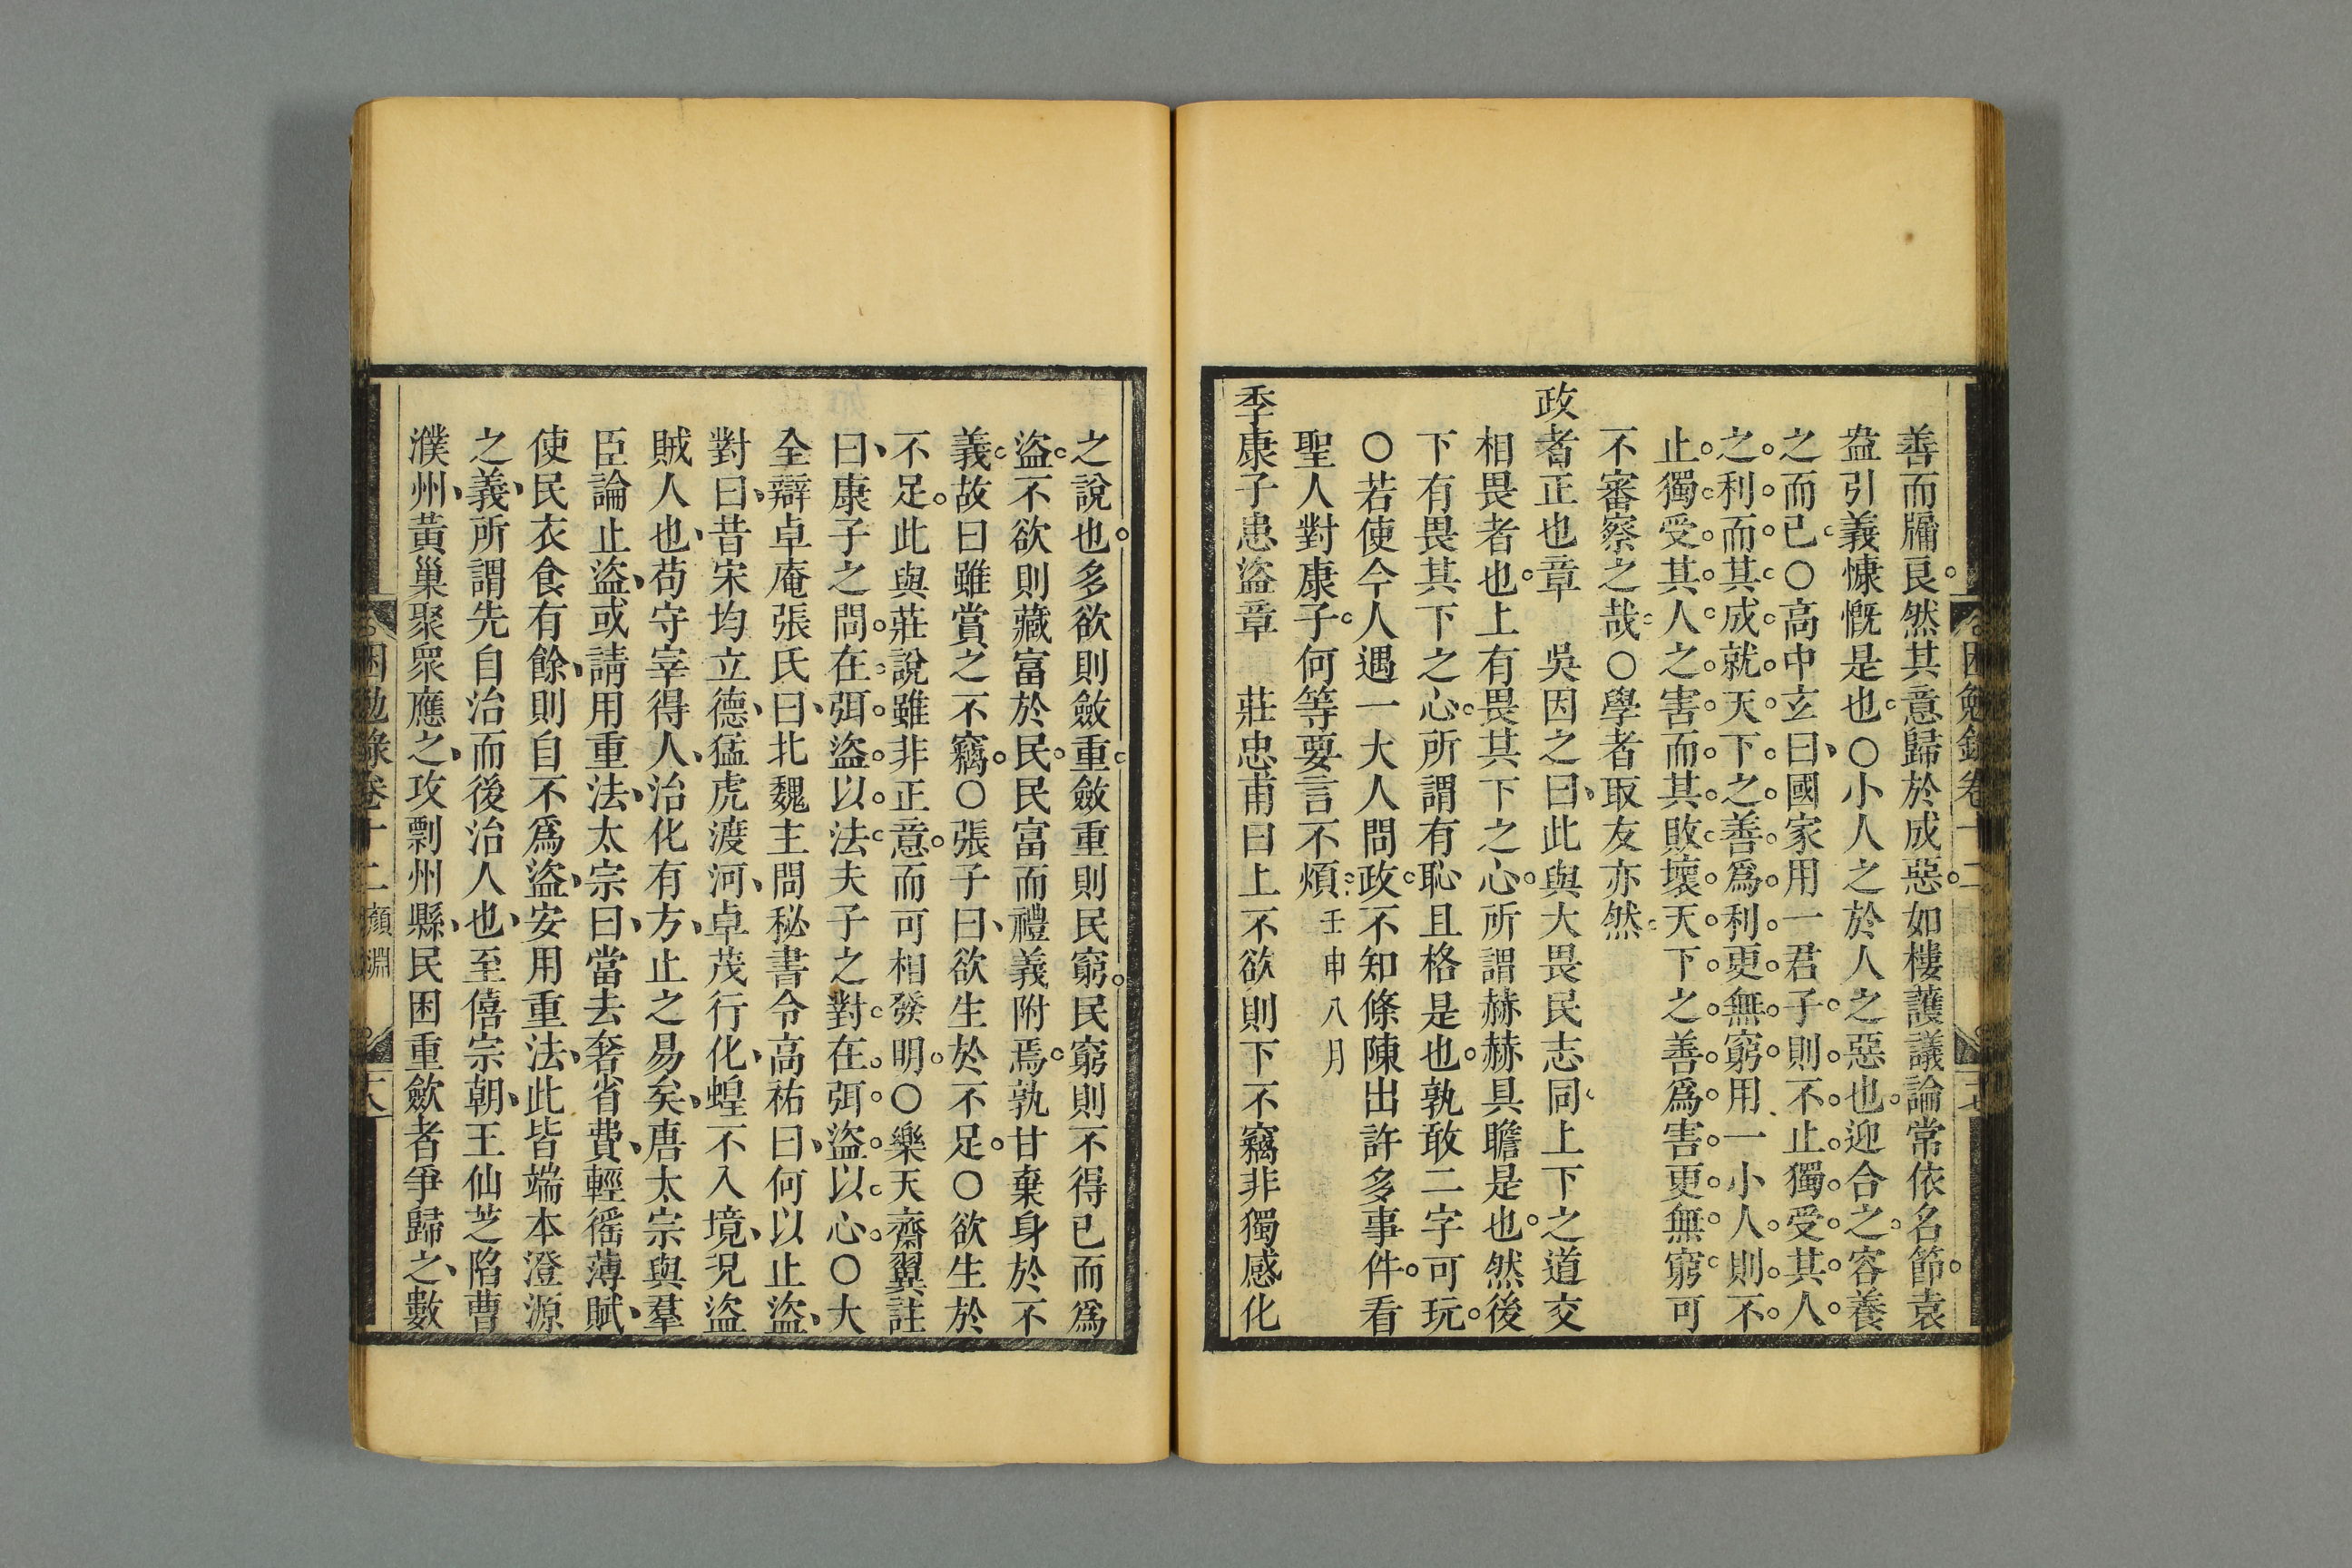 善而牖艮然其意歸於成惡如樓護議論常依名節袁
盎引義慷慨是也○小人之於人之惡也迎合之容養
之而已○高中玄曰國家用一君子則不止獨受其人
之利而其成就天下之善爲利更無窮用一小人則不
止獨受其人之害而其敗壞天下之善爲害更無窮可
不審察之哉○學者取友亦然
政者正也章　吳因之曰此與大畏民志同上下之道交
相畏者也上有畏其下之心所謂赫赫具瞻是也然後
下有畏其下之心所謂有恥且格是也孰敢二字可玩
○若使今人遇一大人問政不知條陳出許多事件看
聖人對康子何等要言不煩壬申八月
季康子患盜章　莊忠甫曰上不欲則下不竊非獨感化
之說也多欲則斂重斂重則民窮民窮則不得已而爲
盜不欲則藏富於民民富而禮義附焉孰甘棄身於不
義故曰雖賞之不竊○張子曰欲生於不足○欲生於
不足此與莊說雖非正意而可相發明○樂天齋翼註
曰康子之問在弭盜以法夫子之對在弭盜以心○大
全辯卓庵張氏曰北魏主問秘書令高祐曰何以止盜
對曰昔宋均立德猛虎渡河卓茂行化蝗不入境況盜
賊人也苟守宰得人治化有方止之易矣唐太宗與羣
臣論止盜或請用重法太宗曰當去奢省費輕徭薄賦
使民衣食有餘則自不爲盜安用重法此皆端本澄源
之義所謂先自治而後治人也至僖宗朝王仙芝陷曹
濮州黃巢聚衆應之攻剽州縣民困重歛者爭歸之數
困勉錄卷十二 顏淵